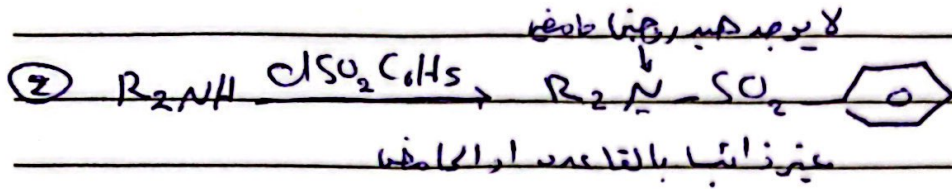 لا يوجد هيدروجين حامضي
② R₂NH ClSO₂C₆H₅ → R₂N-SO₂-
غير ذائب بالقاعدة او الحامض